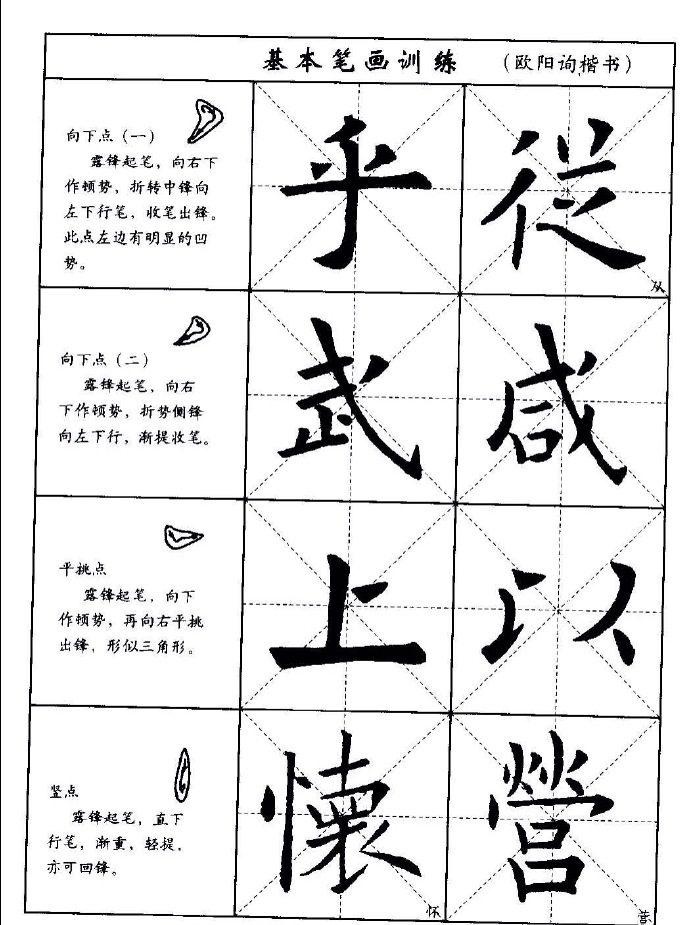 基本笔画训练 （欧阳询楷书）
向下点（一）
露锋起笔，向右下
作顿势，折转中锋向
左下行笔，收笔出锋。
此点左边有明显的凹
势。
乎 從
从
向下点（二）
露锋起笔，向右
下作顿势，折势侧锋
向左下行，渐提收笔。
武 咸
平挑点
露锋起笔，向下
作顿势，再向右平挑
出锋，形似三角形。
上 以
竖点
露锋起笔，直下
行笔，渐重、轻提，
亦可回锋。
懷 營
怀 营